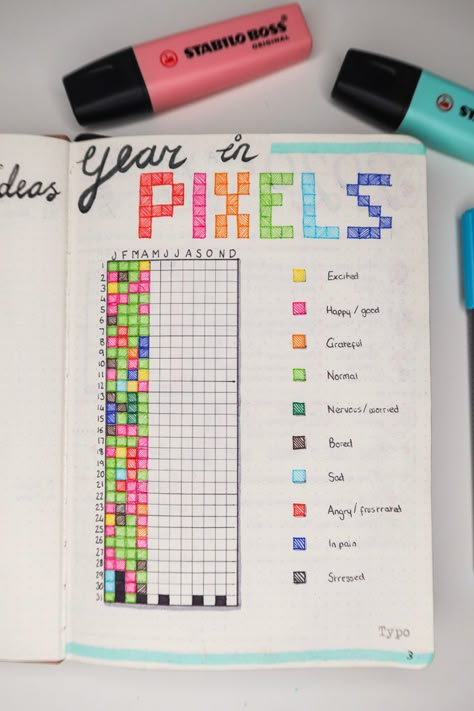 STABILO BOSS
ORIGINAL
ST
deas
Year in
PIXELS
J F M A M J J A S O N D
1
2
3
4
5
6
7
8
9
10
11
12
13
14
15
16
17
18
19
20
21
22
23
24
25
26
27
28
29
30
31
Excited
Happy/good
Grateful
Normal
Nervous/worried
Bored
Sad
Angry/frustrated
In pain
Stressed
Typo
3